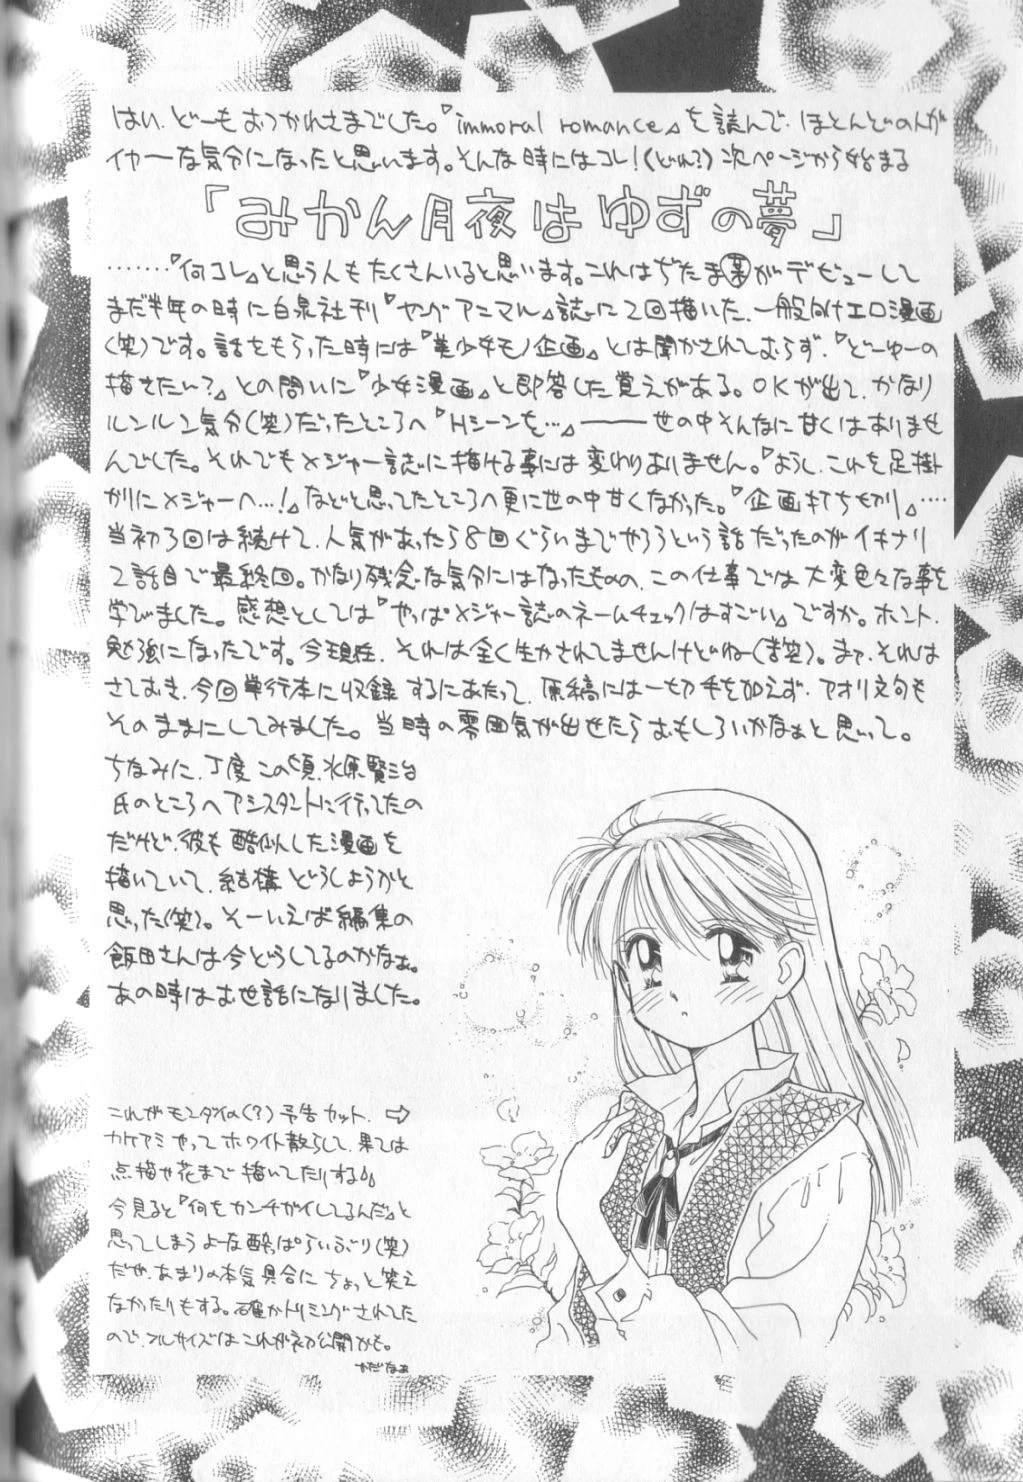 はい、どーもおつかれさまでした。『immoral romance』を読んで、ほとんどの人が
イヤーな気分になったと思います。そんな時にはコレ!(どれ?)次ページから始まる
「みかん月夜はゆずの夢」
……『何コレ』と思う人もたくさんいると思います。これはぢたま㊙がデビューして
まだ半年の時に白泉社刊『ヤングアニマル』誌に2回描いた、一般向けエロ漫画
(笑)です。話をもらった時には『美少女モノ企画』とは聞かされておらず、『どーゆーの
描きたい?』との問いに『少女漫画』と即答した覚えがある。OKが出て、かなり
ルンルン気分(笑)だったところへ『Hシーンを…』――世の中そんなに甘くはありませ
んでした。それでもメジャー誌に描ける事には変わりありません。『ようし、これを足掛
かりにメジャーへ…!』などと思ってたところへ更に世の中甘くなかった。『企画打ち切り』…
当初3回は続けて、人気があったら8回ぐらいまでやろうという話だったのがイキナリ
2話目で最終回。かなり残念な気分にはなったものの、この仕事では大変色々な事を
学びました。感想としては『やっぱメジャー誌のネームチェックはすごい』ですか。ホント、
勉強になったです。今現在、それは全く生かされてませんけどねー(苦笑)。まァ、それは
さておき、今回単行本に収録するにあたって、原稿には一切手を加えず、アオリ文句も
そのままにしてみました。当時の雰囲気が出せたらおもしろいかなぁと思って。
ちなみに、丁度この頃、水原賢治
氏のところへアシスタントに行ってたの
だけど、彼も酷似した漫画を
描いていて、結構どうしようかと
思った(笑)。そーいえば編集の
飯田さんは今どうしてるのかなぁ。
あの時はお世話になりました。
これがモンダイの(?)予告カット。⇨
カケアミやってホワイト散らして、果ては
点描や花まで描いてたりする。
今見ると『何をカンチガイしてるんだ』と
思ってしまうよーな酔っぱらいぶり(笑)
だが、あまりの本気具合にちょっと笑え
なかったりもする。確かトリミングされてた
ので、フルサイズはこれが初公開かも。
かだなぁ